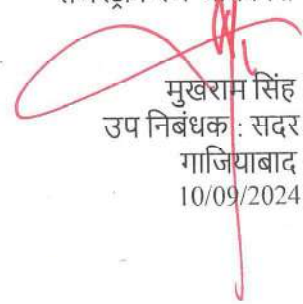 मुखराम सिंह
उप निबंधक : सदर
गाजियाबाद
10/09/2024